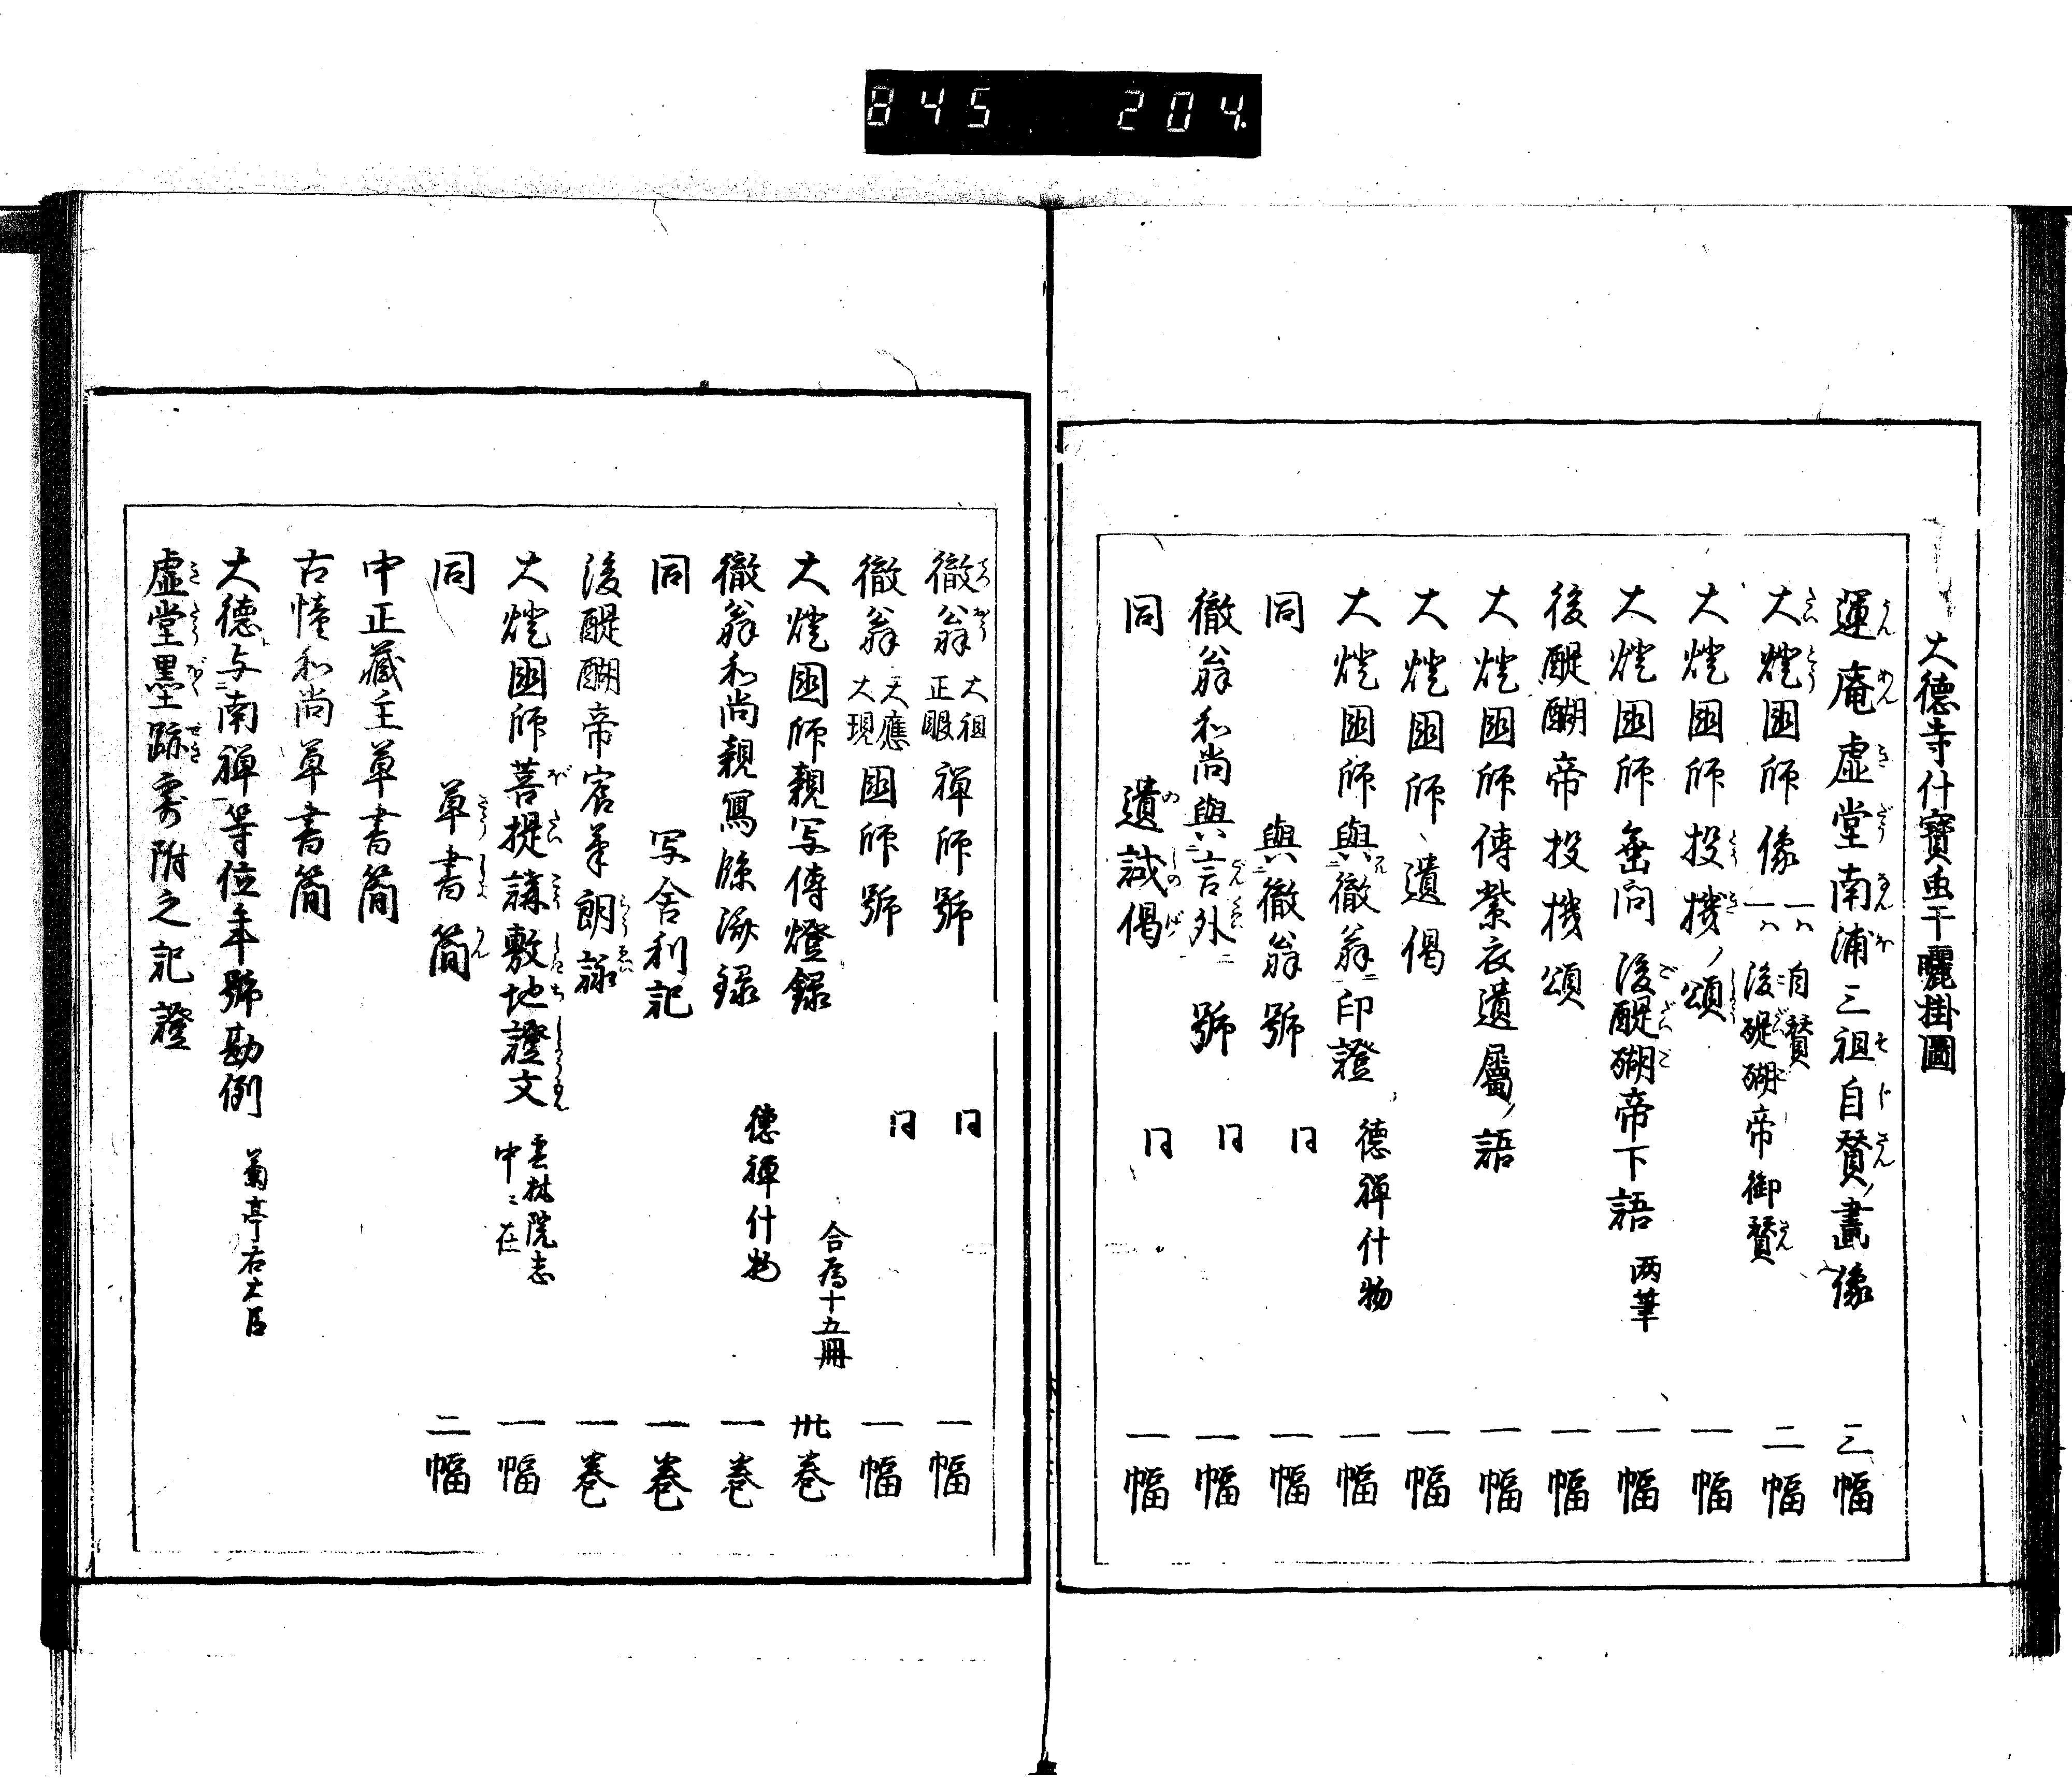 845 204
大德寺什寶虫干曬掛圖
運庵虚堂南浦三祖自賛ノ畫像 三幅
大燈國師像 一ハ自賛 一ハ後醍醐帝御賛 二幅
大燈國師投機ノ頌 一幅
大燈國師垂問 後醍醐帝下語 両筆 一幅
後醍醐帝投機頌 一幅
大燈國師傳紫衣遺屬ノ語 一幅
大燈國師遺偈 一幅
大燈國師與徹翁印證 德禅什物 一幅
同 與徹翁號 同 一幅
徹翁和尚與言外號 同 一幅
同 遺誡偈 同 一幅
徹翁 大祖正眼 禅師號 同 一幅
徹翁 天應大現 國師號 同 一幅
大燈國師親写傳燈録 合為十五冊 卅巻
徹翁和尚親寫 録 德禅什物 一巻
同 写舎利記 一巻
後醍醐帝宸筆朗詠 一巻
大燈國師菩提講敷地證文 雲林院志中ニ在 一幅
同 草書簡 二幅
中正藏主草書簡
古幢和尚草書簡
大德与南禅等位年號勘例 菊亭右大臣
虚堂墨跡寄附之記證